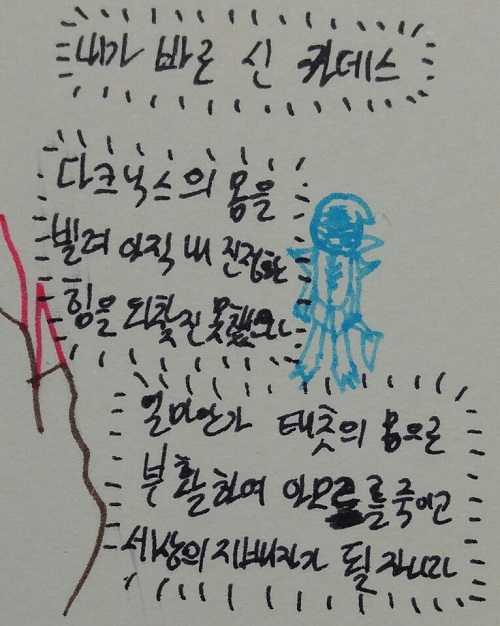 내가 바로 신 칸데스
다크닉스의 몸을
빌려 아직 내 진정한
힘을 되찾진 못했으나
얼마안가 태초의 몸으로
부활하여 아모르를 죽이고
세상의 지배자가 될 자니라